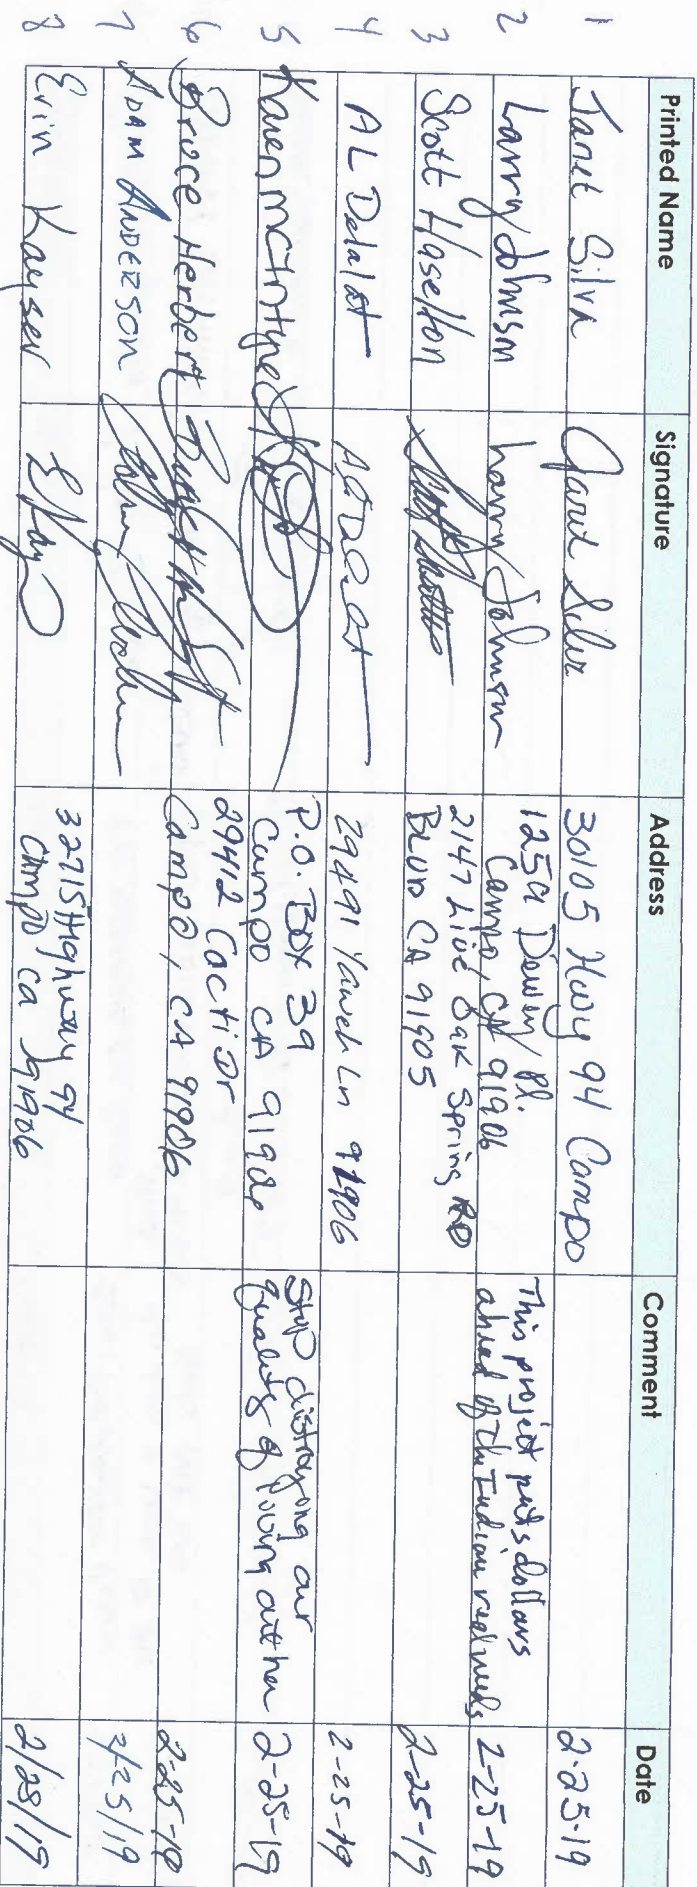 Printed Name Signature Address Comment Date
1 Janet Silva Janet Silva 30105 Hwy 94 Campo 2-25-19
2 Larry Johnson Larry Johnson 1259 Dewey Pl. This project puts dollars
Campo, CA 91906 ahead of the Indian real needs 2-25-19
3 Scott Haselton 2147 Live Oak Spring RD
BLVD CA 91905 2-25-19
4 AL Delalat 29491 Yaweh Ln 91906 2-25-19
5 Karen McIntyre P.O. Box 39 Stop distroyong our
Campo CA 91906 quality of living out her 2-25-19
6 Bruce Herbert 29412 Cacti Dr
Campo, CA 91906 2-25-19
7 ADAM ANDERSON 2/25/19
8 Erin Kayser E Kay 32715 Highway 94
Campo Ca 91906 2/25/19